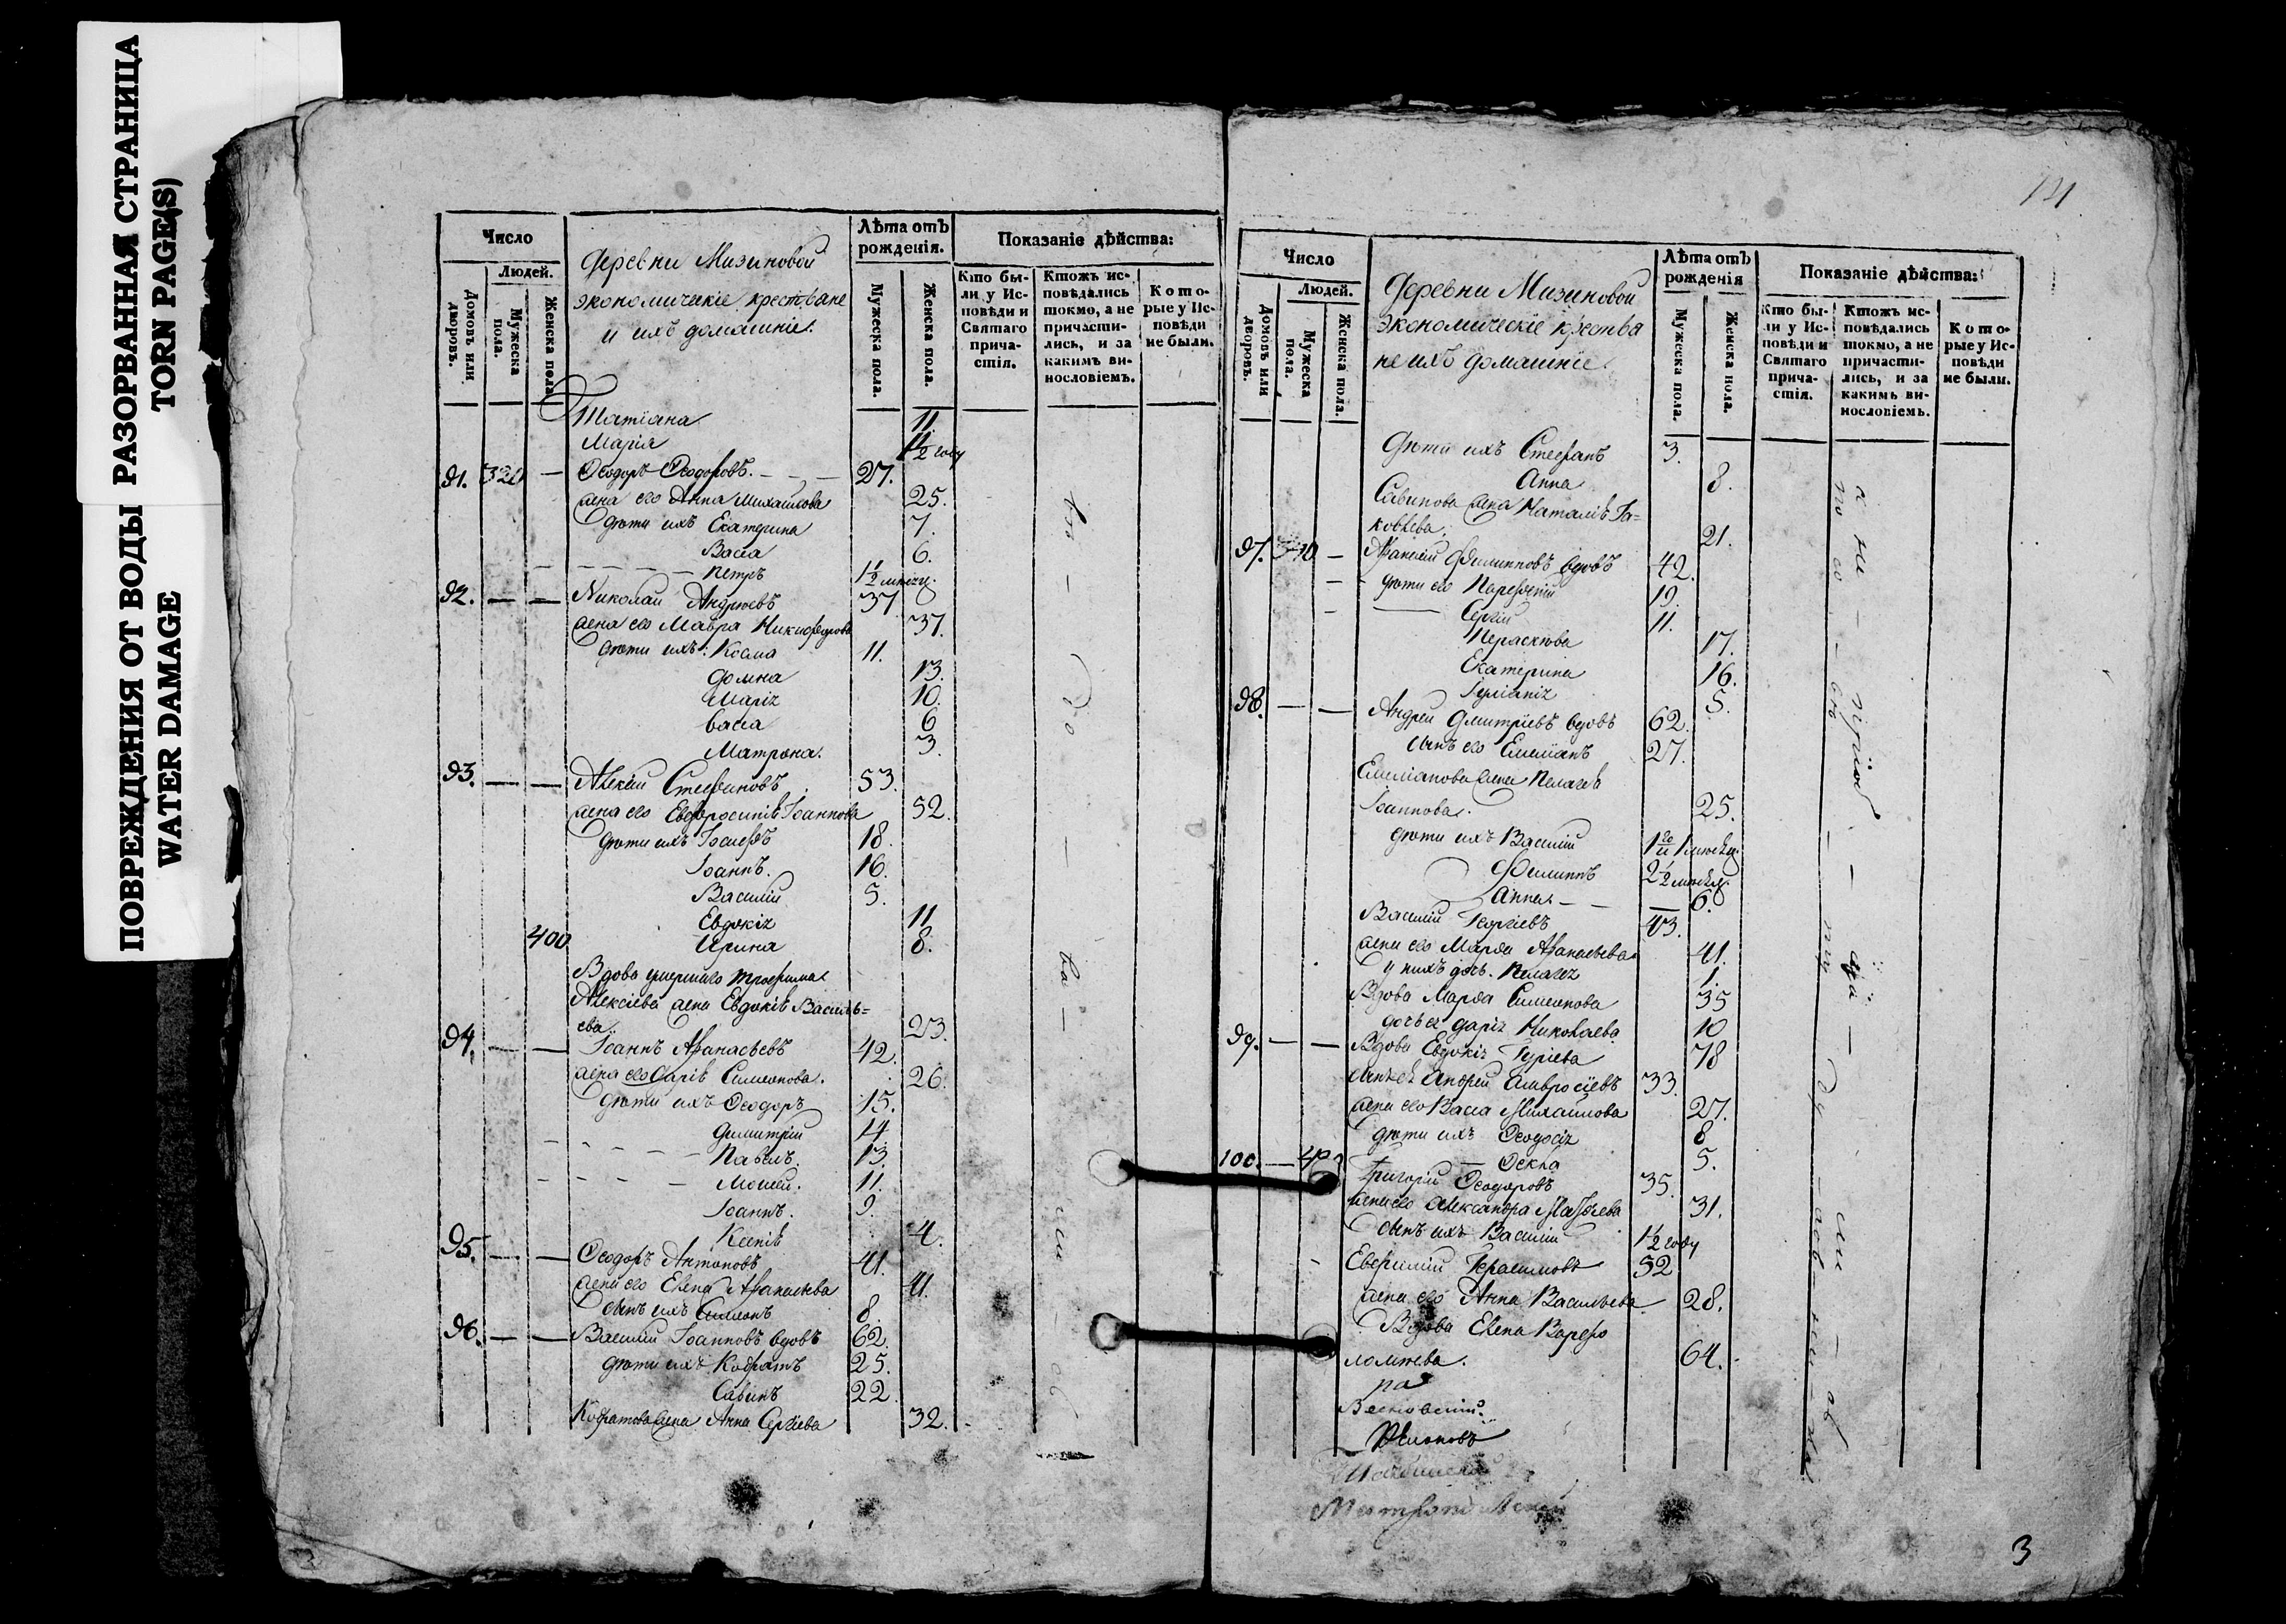 ПОВРЕЖДЕНИЯ ОТ ВОДЫ РАЗОРВАННАЯ СТРАНИЦА
WATER DAMAGE TORN PAGE(S)
Число
Людей.
Домовъ или дворовъ.
Мужеска пола.
Женска пола.
Деревни Мизиновой
экономическіе крестьяне
и ихъ домашніе.
Лѣта отъ рожденія.
Мужеска пола.
Женска пола.
Показаніе дѣйства:
Кто были у Исповѣди и Святаго причастія.
Ктожъ исповѣдались токмо, а не причастились, и за какимъ винословіемъ.
Которые у Исповѣди не были.
Татіана 11.
Марія 1 1/2 году
91. — Ѳеодоръ Ѳеодоровъ. 27.
жена его Анна Михаилова 25.
дѣти ихъ Екатерина 7.
Васса 6.
Петръ 1 1/2
92. — — Николай Андреевъ 37
жена его Мавра Никифорова 37.
дѣти ихъ: Косма 11.
Домна 13.
Марія 10.
Васса 6
Матрона. 3.
93. — — Алексій Стефановъ 53.
жена его Евфросинія Іоаннова 52.
дѣти ихъ Іосифъ 18.
Іоаннъ. 16.
Василій 5.
Евдокія 11.
400 Ирина 8.
Вдова умершаго Трофима
Алексіева жена Евдокія Василь=
ева 23.
94. — — Іоаннъ Афанасьевъ 42.
жена его Дарія Симеонова. 26.
дѣти ихъ Ѳеодоръ 15.
Димитрій 14.
Павелъ. 13.
Моисей. 11.
Іоаннъ. 9.
Ксенія 4.
95. — — Ѳеодоръ Антоновъ 41.
жена его Елена Афанасьева 41.
сынъ ихъ Симеонъ 8.
96. — — Василій Іоанновъ вдовъ 62.
дѣти ихъ Кодратъ 25.
Савинъ 22
Кодратова жена Анна Сергіева 32.
Число
Людей.
Домовъ или дворовъ.
Мужеска пола.
Женска пола.
Деревни Мизиновой
экономическіе крестья
не ихъ домашніе.
Лѣта отъ рожденія
Мужеска пола.
Женска пола.
Показаніе дѣйства:
Кто были у Исповѣди и Святаго причастія.
Ктожъ исповѣдались токмо, а не причастились, и за какимъ винословіемъ.
Которые у Исповѣди не были.
Дѣти ихъ Стефанъ 3.
Анна 8.
Савинова жена Наталія Іа=
ковлева. 21.
97. — Афанасій Филипповъ вдовъ 42.
дѣти его Парфеній 19.
Сергій 11.
Параскева 17.
Екатерина 16.
Іуліанія 5.
98. — — Андрей Дмитріевъ вдовъ 62.
сынъ его Емиліанъ 27.
Емиліанова жена Пелагея
Іоаннова. 25.
дѣти ихъ Василій
Филиппъ 2 1/2
Анна 6.
Василій Георгіевъ 43.
жена его Марѳа Афанасьева 41.
у нихъ дочь Пелагея 1.
Вдова Марѳа Симеонова 35
дочь ея Дарія Николаева 10
99. — — Вдова Евдокія Гуріева 78
сынъ ея Андрей Амвросіевъ 33.
жена его Васса Михаилова 27.
дѣти ихъ Ѳеодосія 8
Ѳекла 5.
100. — Григорій Ѳеодоровъ 35.
жена его Александра Матѳеева 31.
сынъ ихъ Василій 1 1/2 году
Евфимій Герасимовъ 52
жена его Анна Васильева 28.
Вдова Елена Варфо
ломѣева. 64.
3